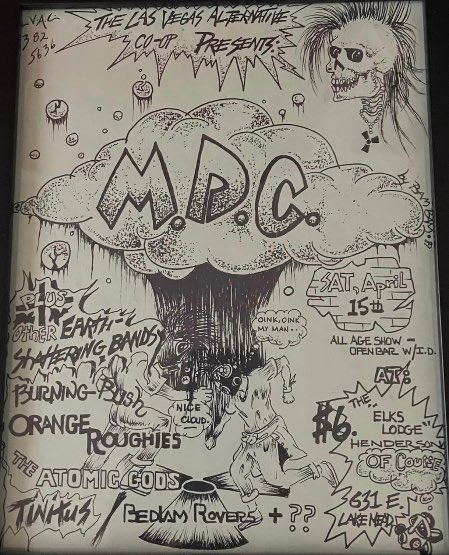 V.A.C.
382
5636
THE LAS VEGAS ALTERNATIVE
CO-OP PRESENTS:
M.D.C.
BY BAM BAM
SAT, April
15th
ALL AGE SHOW -
OPEN BAR W/I.D.
PLUS
OTHER EARTH-
SHATTERING BANDS
OINK, OINK
MY MAN..
BURNING-Bush
NICE
CLOUD.
ORANGE
ROUGHIES
THE ATOMIC GODS
TINHUS / BEDLAM ROVERS + ??
AT:
$6.
THE
ELKS
LODGE"
HENDERSON
OF COURSE
631 E.
LAKE MEAD